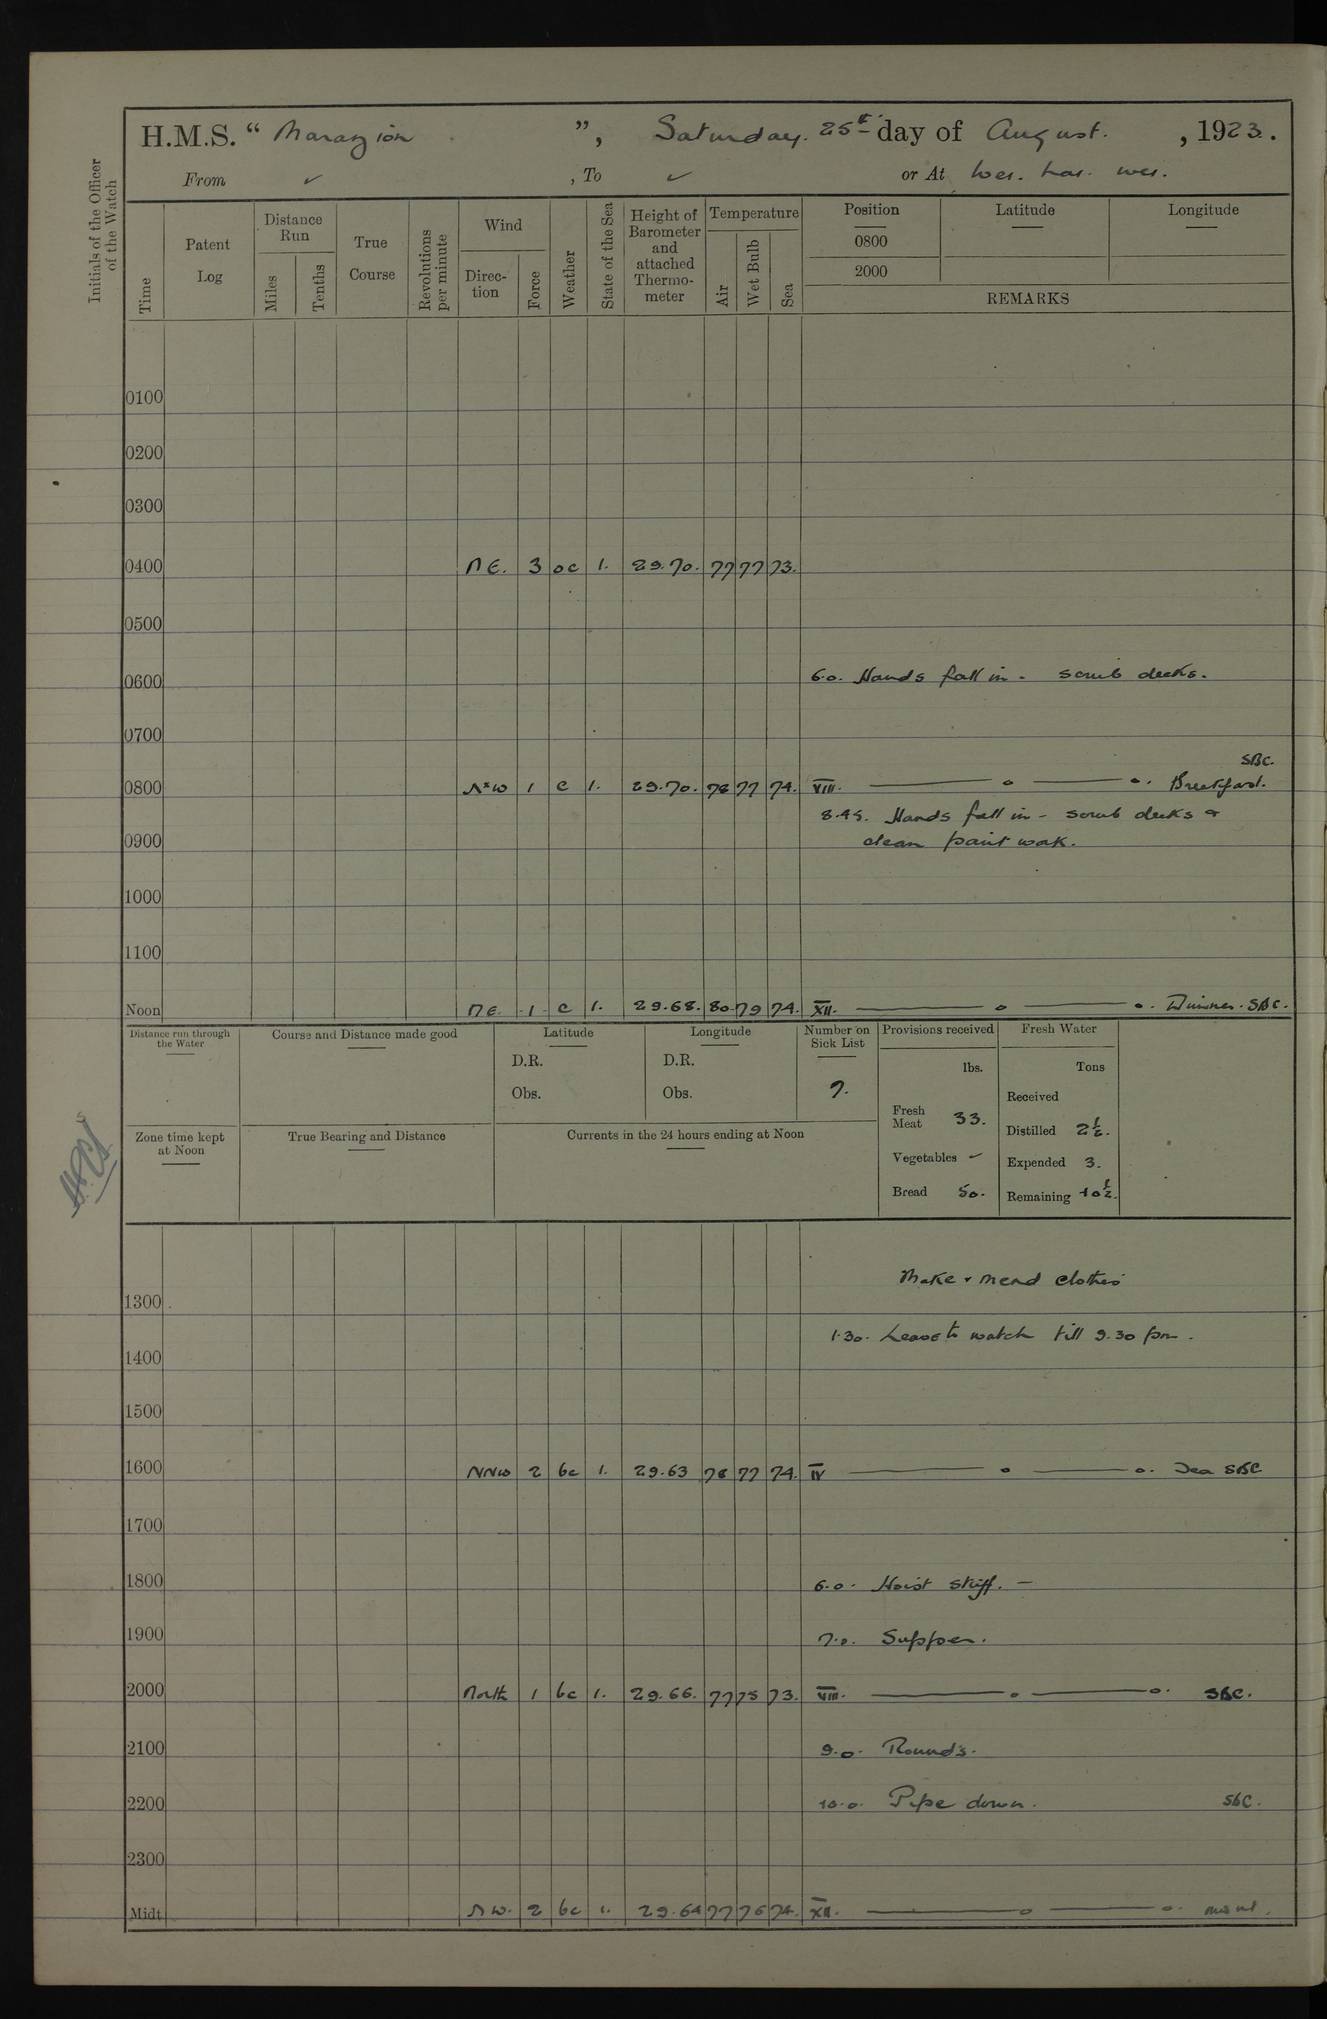 H.M.S. “ Marazion ”, Saturday. 25th day of August. , 1923.
From ✓ , To ✓ or At Wei. hai. wei.
Initials of the Officer of the Watch
Time
Patent Log
Distance Run
Miles
Tenths
True Course
Revolutions per minute
Wind
Direc-tion
Force
Weather
State of the Sea
Height of Barometer and attached Thermo-meter
Temperature
Air
Wet Bulb
Sea
Position
0800
2000
Latitude
Longitude
REMARKS
0100
0200
0300
0400 NE. 3 oc 1. 29.70. 77 77 73.
0500
0600 6.0. Hands fall in - scrub decks.
0700
SBC.
0800 NxW 1 c 1. 29.70. 78 77 74. VIII. ——— o ——— o. Breakfast.
8.45. Hands fall in - scrub decks &
0900 clean paint work.
1000
1100
Noon NE. 1 c 1. 29.68. 80 79 74. XII. ——— o ——— o. Dinner. SBC.
Distance run through the Water
Course and Distance made good
Latitude
D.R.
Obs.
Longitude
D.R.
Obs.
Number on Sick List
7.
Provisions received
lbs.
Fresh Meat 33.
Vegetables ✓
Bread 50.
Fresh Water
Tons
Received
Distilled 2½.
Expended 3.
Remaining 10½.
Zone time kept at Noon
True Bearing and Distance
Currents in the 24 hours ending at Noon
Make & mend clothes
1300
1.30. Leave to watch till 9.30 pm.
1400
1500
1600 NNW 2 bc 1. 29.63 78 77 74. IV ——— o ——— o. Tea SBC
1700
1800 6.0. Hoist skiff. —
1900 7.0. Supper.
2000 North 1 bc 1. 29.66. 77 75 73. VIII. ——— o ——— o. SBC.
2100 9.0. Rounds.
2200 10.0. Pipe down. SBC.
2300
Midt. NW. 2 bc 1. 29.64 77 76 74. XII. ——— o ——— o.